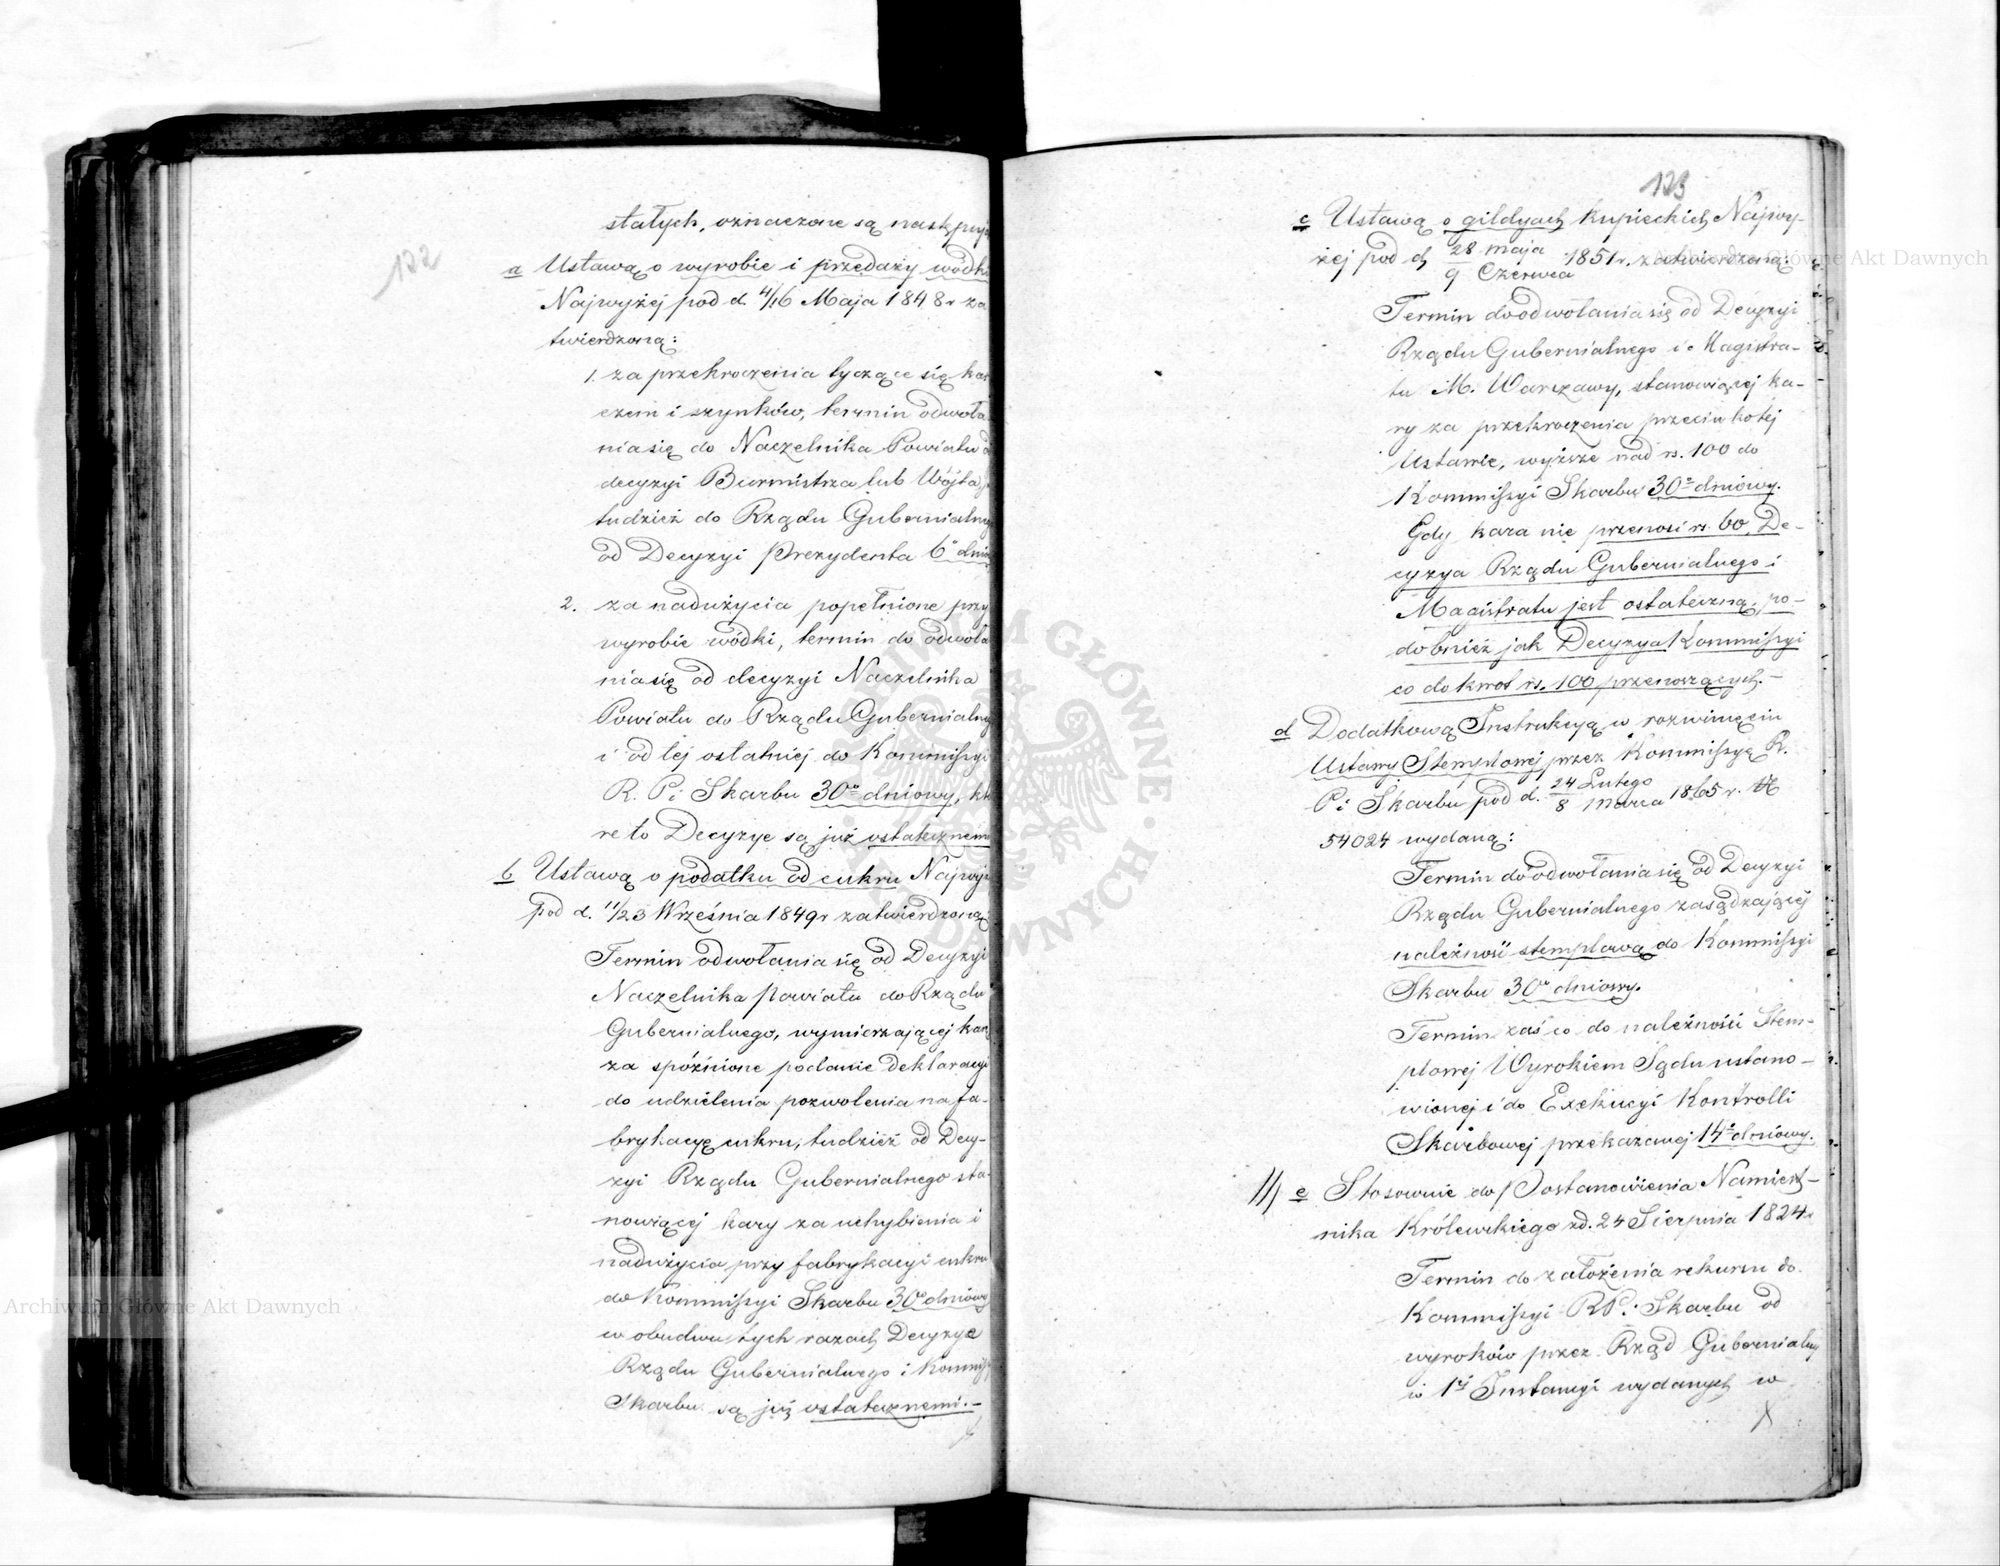 122
stałych, oznaczone są następują
a Ustawą o wyrobie i przedaży wódki
Najwyżej pod d. 4/16 Maja 1848 r za
twierdzoną:
1. za przekroczenia tyczące się kar
czem i szynków, termin odwoła
nia się do Naczelnika Powiatu od
decyzyi Burmistrza lub Wójta,
tudzież do Rządu Gubernialnego
od Decyzyi Prezydenta 6o dnio
2. za nadużycia popełnione przy
wyrobie wódki, termin do odwoła
nia się od decyzyi Naczelnika
Powiatu do Rządu Gubernialneg
i od tej ostatniej do Kommissyi
R. P. i Skarbu 30o dniowy, któ
re to Decyzye są już ostatecznemi
b Ustawą o podatku od cukru Najwyż
pod d. 11/23 Września 1849 r zatwierdzoną
Termin odwołania się od Decyzyi
Naczelnika Powiatu do Rządu
Gubernialnego, wymierzającej karę
za spóźnione podanie deklaracyi
do udzielenia pozwolenia na fa-
brykacyę cukru, tudzież od Decy-
zyi Rządu Gubernialnego sta-
nowiącej kary za uchybienia i
nadużycia przy fabrykacyi cukru
do Kommissyi Skarbu 30o dniowy
w obudwu tych razach Decyzye
Rządu Gubernialnego i Kommiss
Skarbu są już ostatecznemi.-
123
c Ustawą o gildyach kupieckich Najwy-
żej pod d 28 Maja / 9 Czerwca 1851 r. zatwierdzoną:
Termin do odwołania się od Decyzyi
Rządu Gubernialnego i Magistra-
tu M. Warszawy, stanowiącej ka-
ry za przekroczenia przeciwko tej
Ustawie, wyższe nad rs. 100 do
Kommissyi Skarbu 30o dniowy.
Gdy kara nie przenosi rs. 60, De-
cyzya Rządu Gubernialnego i
Magistratu jest ostateczną, po-
dobnież jak Decyzya Kommissyi
co do kwot rs. 100 przenoszących.-
d Dodatkową Instrukcyą w rozwinięciu
Ustawy Stemplowej przez Kommissyą R.
P. i Skarbu pod d. 24 Lutego / 8 Marca 1865 r. N
54024 wydaną:
Termin do odwołania się od Decyzyi
Rządu Gubernialnego zasądzającej
należność stemplową do Kommissyi
Skarbu 30o dniowy.
Termin zaś co do należności Stem-
plowej Wyrokiem Sądu ustano-
wionej i do Exekucyi Kontrolli
Skarbowej przekazanej 14o dniowy.
e Stosownie do Postanowienia Namiest-
nika Królewskiego z d. 24 Sierpnia 1824 r
Termin do założenia rekursu do
Kommissyi R.P. i Skarbu od
wyroków przez Rząd Gubernialny
w 1ej Instancyi wydanych w
Archiwum Główne Akt Dawnych
Archiwum Główne Akt Dawnych
ARCHIWUM GŁÓWNE AKT DAWNYCH